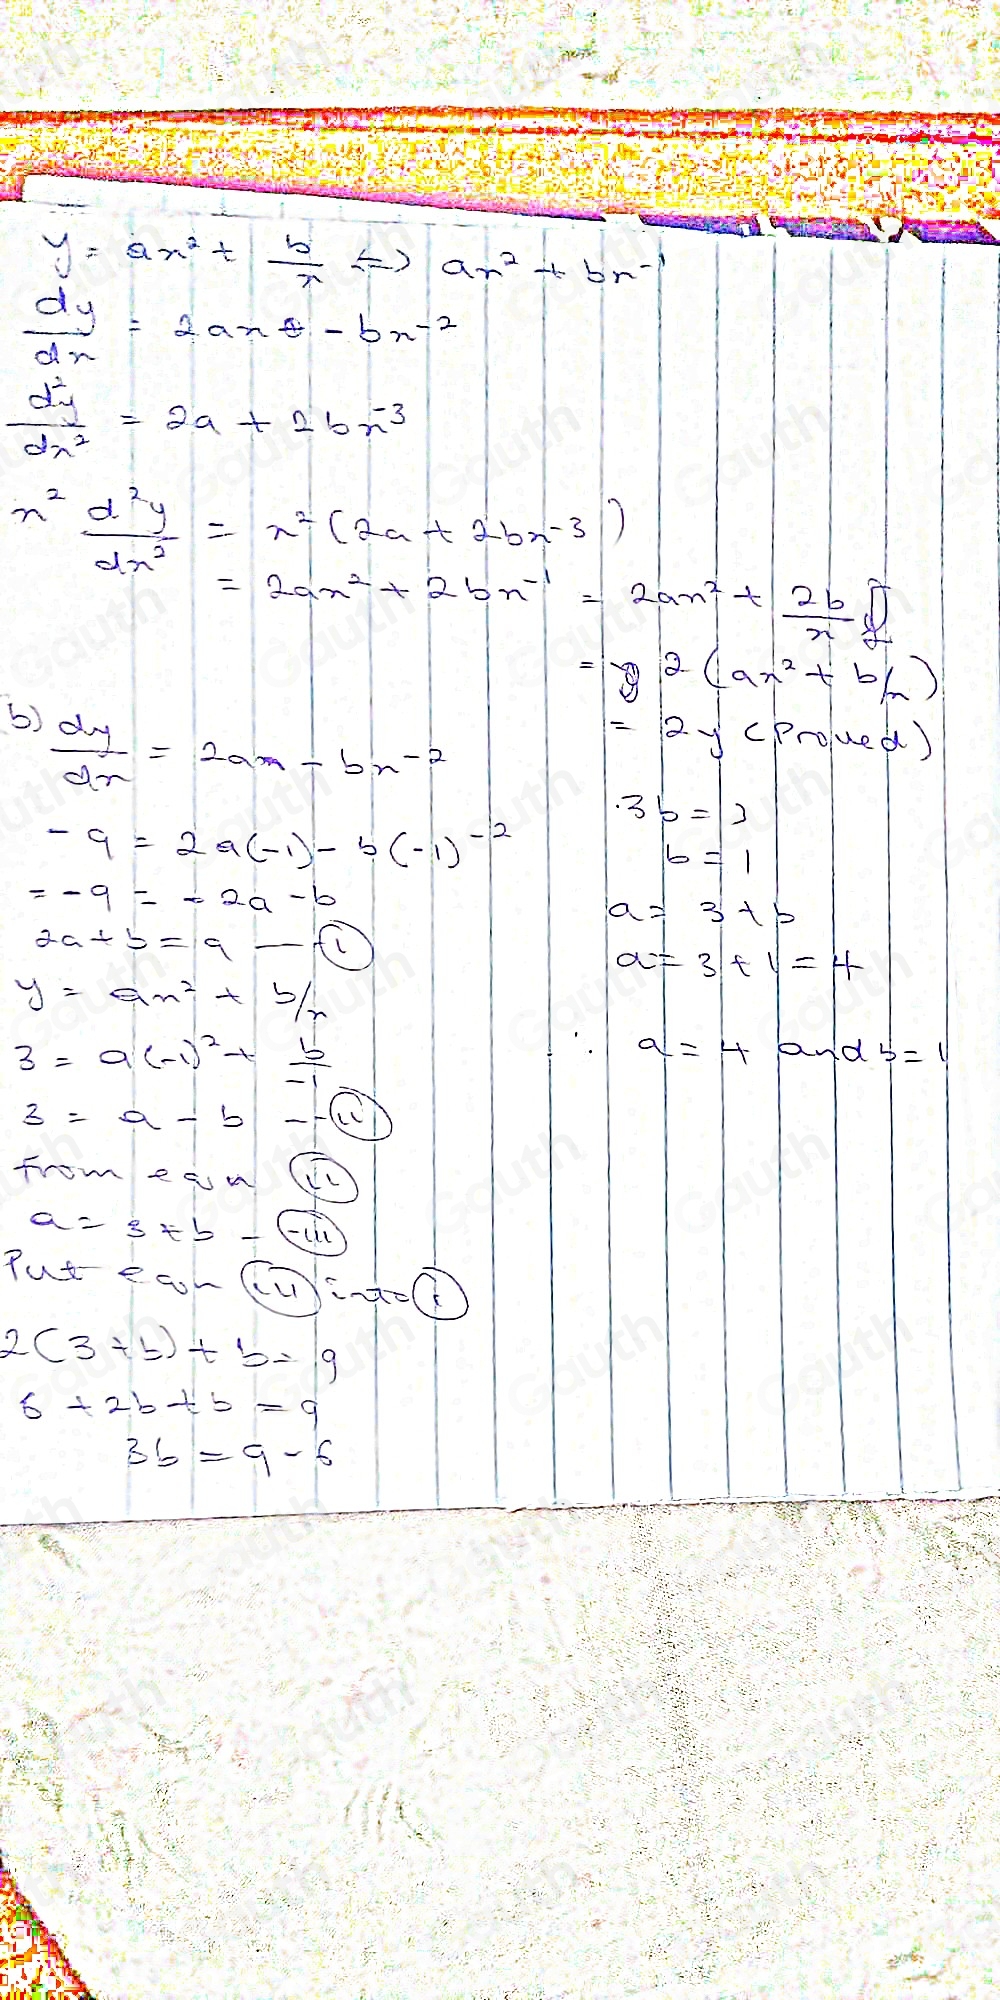 y = ax² + b/x <=> ax² + bx⁻¹
dy/dx = 2ax - bx⁻²
d²y/dx² = 2a + 2bx⁻³
x² d²y/dx² = x²(2a + 2bx⁻³)
= 2ax² + 2bx⁻¹ = 2ax² + 2b/x
= 2(ax² + b/x)
= 2y (Proved)
b) dy/dx = 2ax - bx⁻²
-9 = 2a(-1) - b(-1)⁻²
= -9 = -2a - b
2a + b = 9 — (i)
y = ax² + b/x
3 = a(-1)² + b/-1
3 = a - b -- (ii)
from eqn (ii)
a = 3 + b - (iii)
Put eqn (iii) into (i)
2(3 + b) + b = 9
6 + 2b + b = 9
3b = 9 - 6
3b = 3
b = 1
a = 3 + b
a = 3 + 1 = 4
∴ a = 4 and b = 1
Gauth